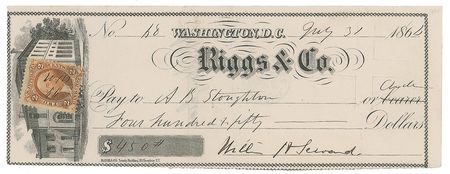 No. 68 WASHINGTON, D.C. July 31 186
Riggs & Co.
Pay to A B Stoughton or bearer Order
Four hundred & fifty Dollars
$ 450 #
Will H Seward